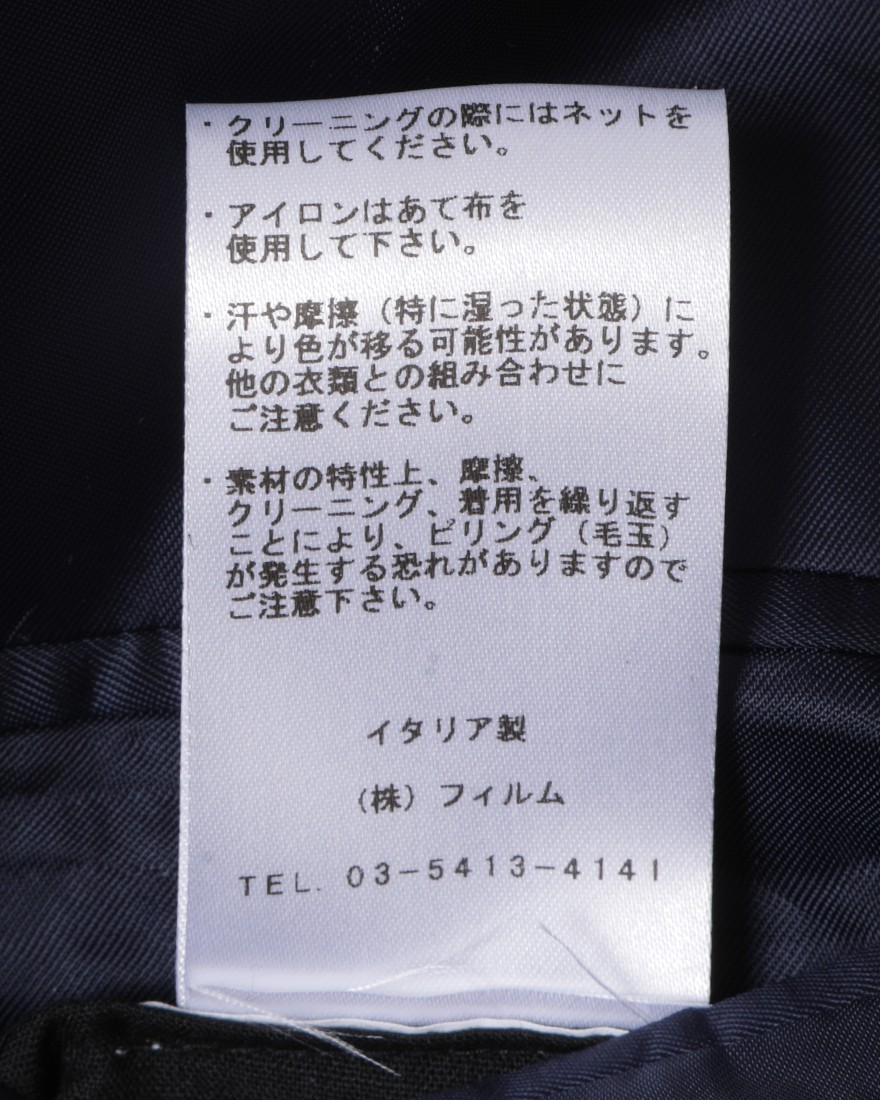 ・クリーニングの際にはネットを
使用してください。
・アイロンはあて布を
使用して下さい。
・汗や摩擦（特に湿った状態）に
より色が移る可能性があります。
他の衣類との組み合わせに
ご注意ください。
・素材の特性上、摩擦、
クリーニング、着用を繰り返す
ことにより、ピリング（毛玉）
が発生する恐れがありますので
ご注意下さい。
イタリア製
（株）フィルム
TEL. 03-5413-4141